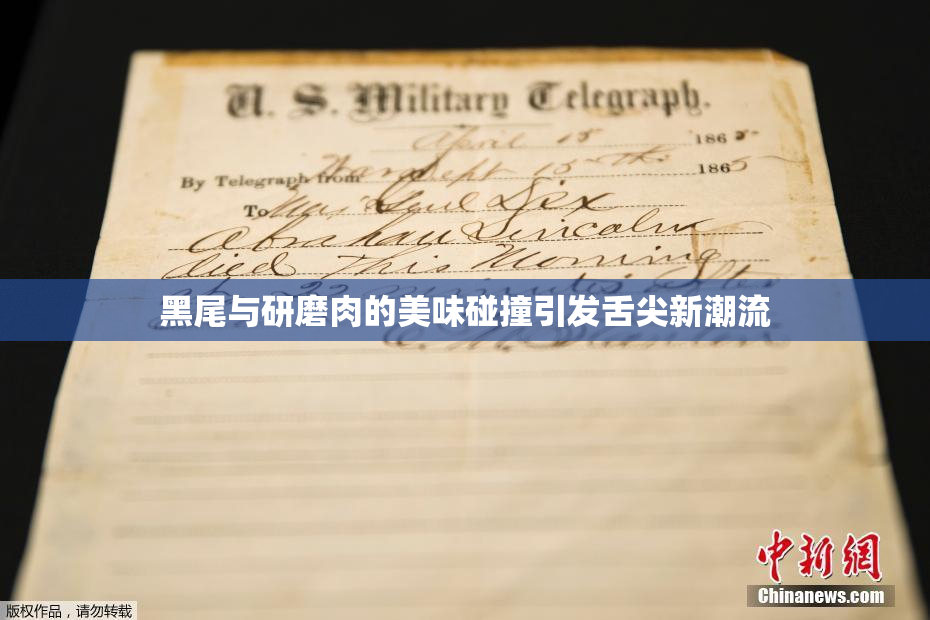 U. S. Military Telegraph.
April 15 1865
By Telegraph from War Dept 15th 1865
To Maj Genl Dix
Abraham Lincoln
died This Morning
at 22 minutes after
黑尾与研磨肉的美味碰撞引发舌尖新潮流
E. M. Stanton
中新网
Chinanews.com
版权作品，请勿转载